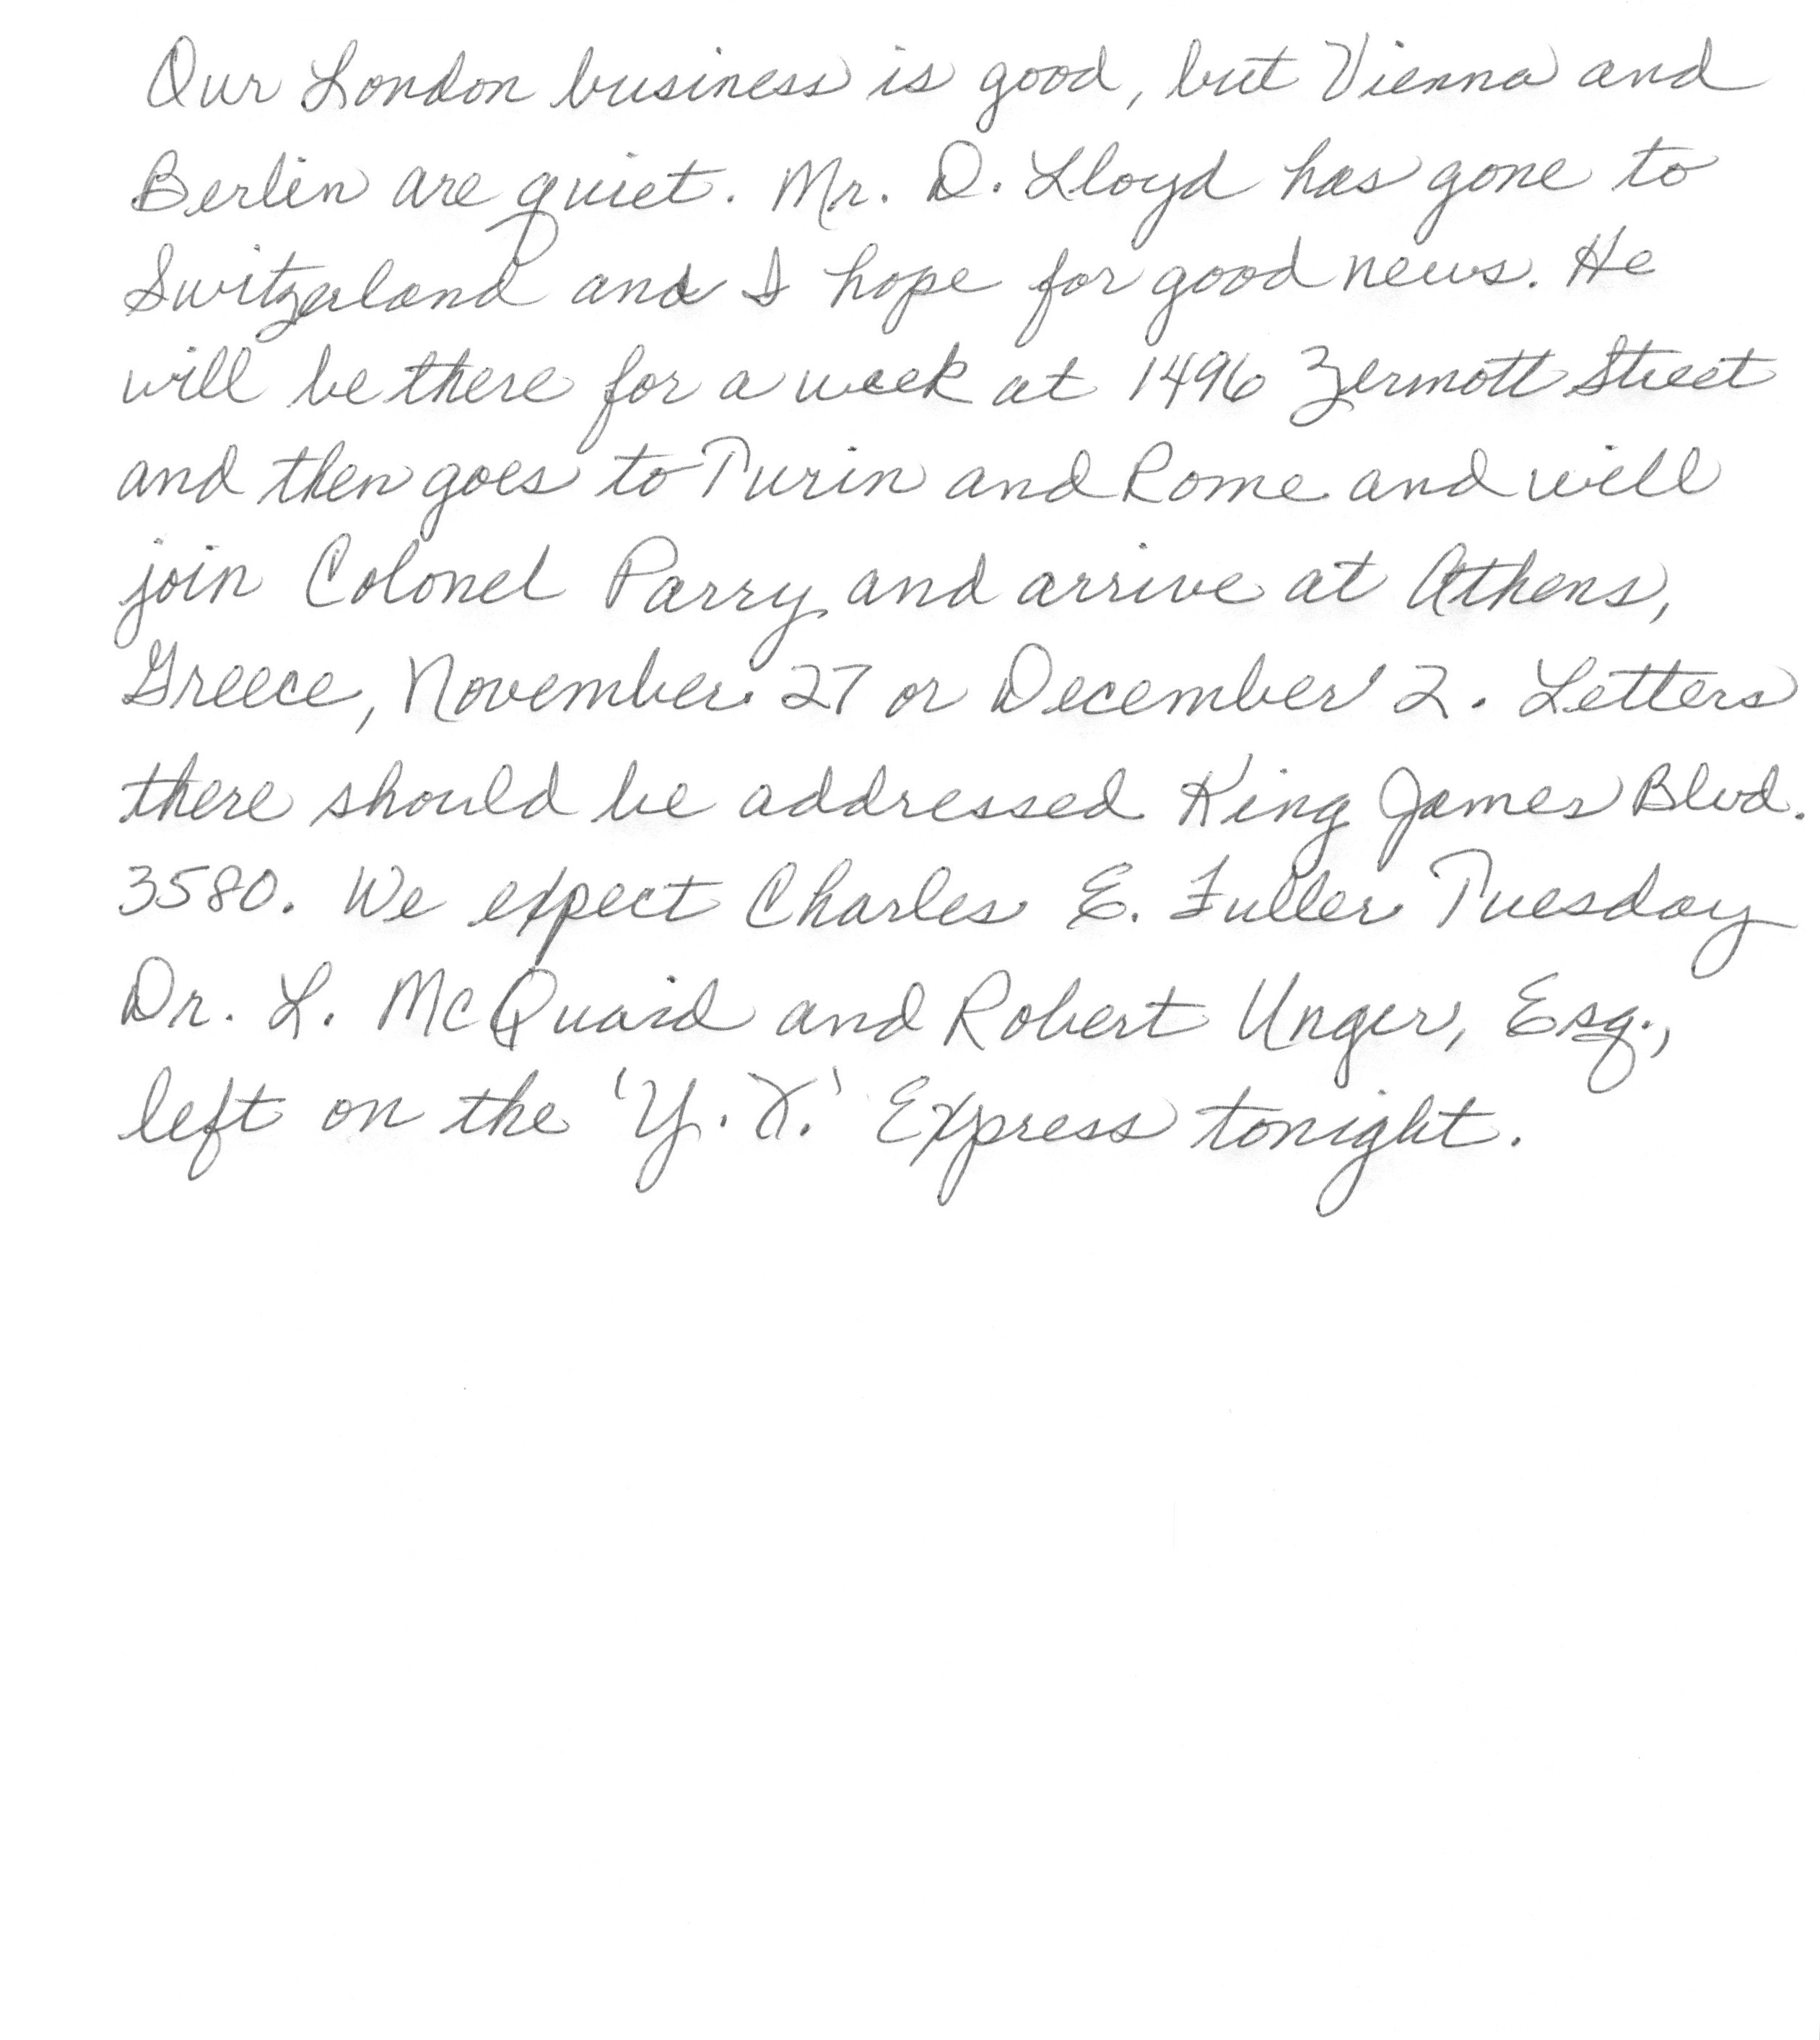 Our London business is good, but Vienna and
Berlin are quiet. Mr. D. Lloyd has gone to
Switzerland and I hope for good news. He
will be there for a week at 1496 Zermott Street
and then goes to Turin and Rome and will
join Colonel Parry and arrive at Athens,
Greece, November 27 or December 2. Letters
there should be addressed King James Blvd.
3580. We expect Charles E. Fuller Tuesday
Dr. L. McQuaid and Robert Unger, Esq.,
left on the 'Y. X.' Express tonight.